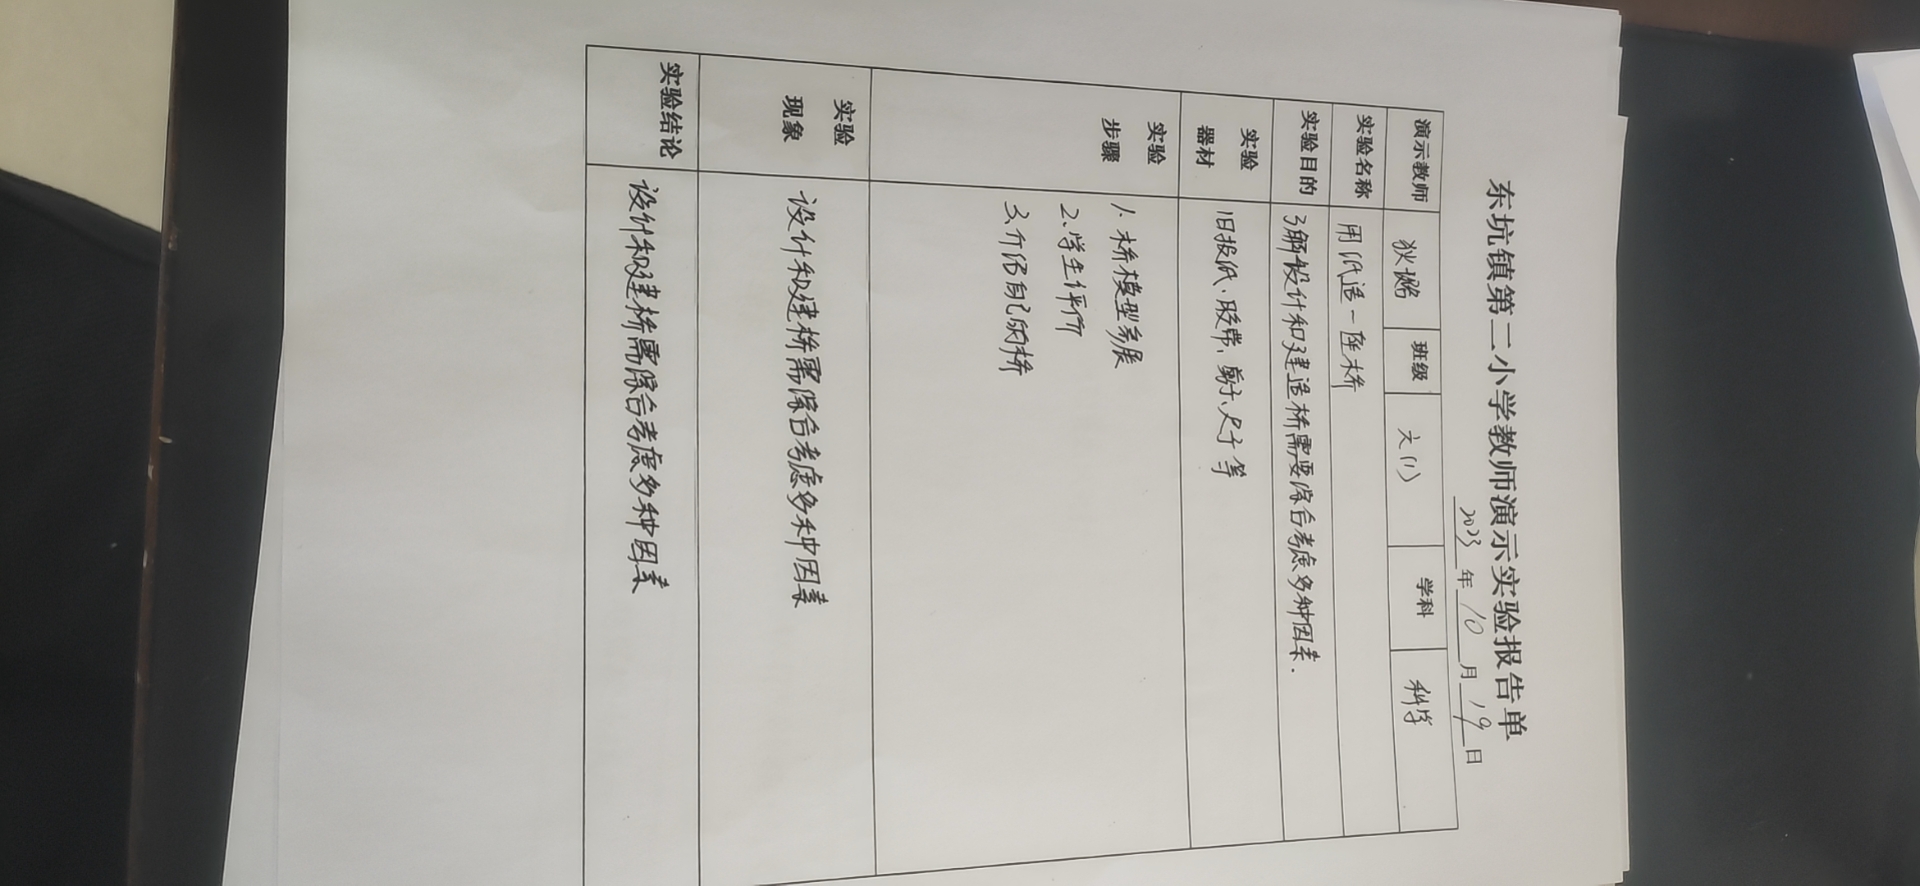 东坑镇第二小学教师演示实验报告单
2023年10月19日
演示教师 狄 班级 六(1) 学科 科学
实验名称 用纸造一座桥
实验目的 了解设计和建造桥需要综合考虑多种因素.
实验器材 旧报纸、胶带、剪子、尺子等
实验步骤 1.桥模型参展
2.学生评价
3.介绍自己的桥
实验现象 设计和建桥需综合考虑多种因素
实验结论 设计和建桥需综合考虑多种因素